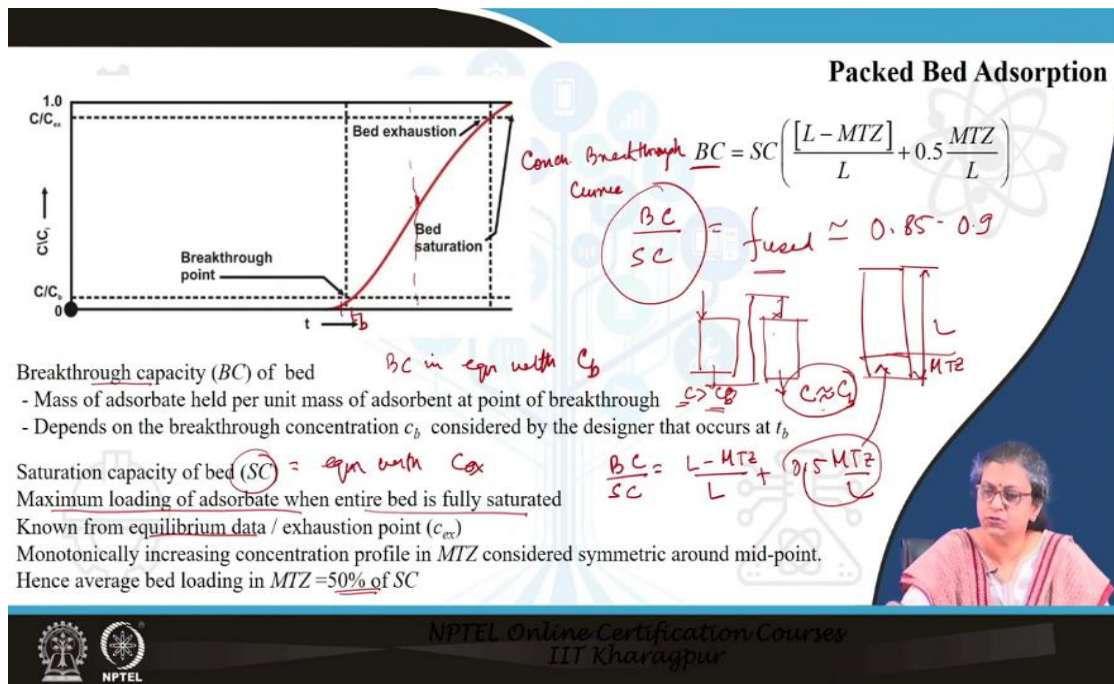 Packed Bed Adsorption
1.0
C/C_ex
Bed exhaustion
C/C_i
Bed saturation
Breakthrough point
C/C_b
0
t
t_b
Concn. Breakthrough
Curve
BC = SC([L − MTZ]/L + 0.5 MTZ/L)
BC/SC = f used ≃ 0.85 - 0.9
L
MTZ
C > C_B
C ≈ C_b
Breakthrough capacity (BC) of bed
BC in eqm with C_b
- Mass of adsorbate held per unit mass of adsorbent at point of breakthrough
- Depends on the breakthrough concentration c_b considered by the designer that occurs at t_b
Saturation capacity of bed (SC) = eqm with C_ex
BC/SC = L-MTZ/L + 0.5 MTZ/L
Maximum loading of adsorbate when entire bed is fully saturated
Known from equilibrium data / exhaustion point (c_ex)
Monotonically increasing concentration profile in MTZ considered symmetric around mid-point.
Hence average bed loading in MTZ =50% of SC
NPTEL
NPTEL Online Certification Courses
IIT Kharagpur